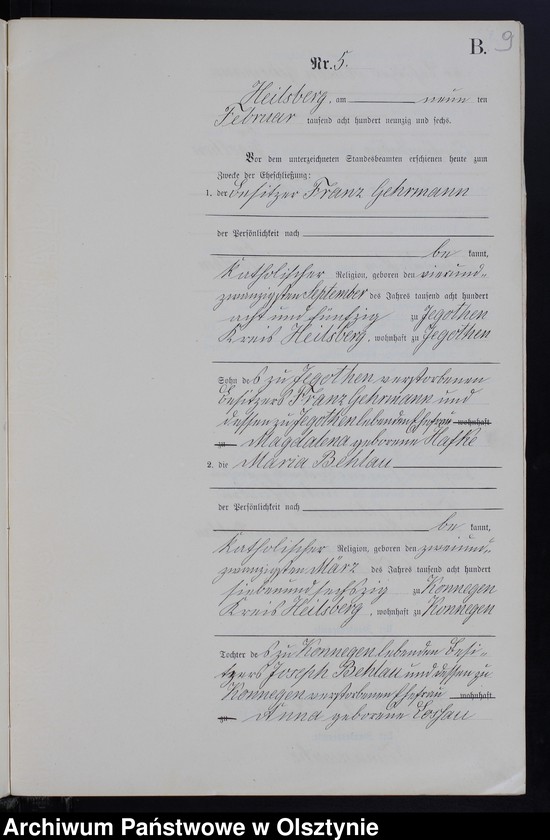 B. 9
Nr. 5.
Heilsberg, am neun ten
Februar tausend acht hundert neunzig und sechs.
Vor dem unterzeichneten Standesbeamten erschienen heute zum
Zwecke der Eheschließung:
1. der Besitzer Franz Gehrmann
der Persönlichkeit nach
be kannt,
katholischer Religion, geboren den vierund-
zwanzigsten September des Jahres tausend acht hundert
acht und fünfzig zu Jegothen
Kreis Heilsberg, wohnhaft zu Jegothen
Sohn des zu Jegothen verstorbenen
Besitzers Franz Gehrmann und
dessen zu Jegothen lebenden Ehefrau wohnhaft
zu Magdalena geborene Hafke
2. die Maria Behlau
der Persönlichkeit nach
be kannt,
katholischer Religion, geboren den zweiund-
zwanzigsten März des Jahres tausend acht hundert
siebenundsechszig zu Konnegen
Kreis Heilsberg, wohnhaft zu Konnegen
Tochter des zu Konnegen lebenden Besi-
tzers Joseph Behlau und dessen zu
Konnegen verstorbenen Ehefrau wohnhaft
zu Anna geborene
Archiwum Państwowe w Olsztynie